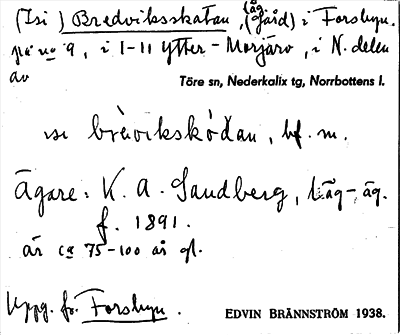 (Isi) Bredviksskatan, (låg. Gård) i Forshyn.
på no 9, i I-II Ytter-Morjärv, i N. delen
av
Töre sn, Nederkalix tg, Norrbottens l.
bf. m.
Ägare: K. A. Sandberg, Läg-äg.
f. 1891.
är ca 75-100 år gl.
Uppg. fr. Forshyn.
EDVIN BRÄNNSTRÖM 1938.